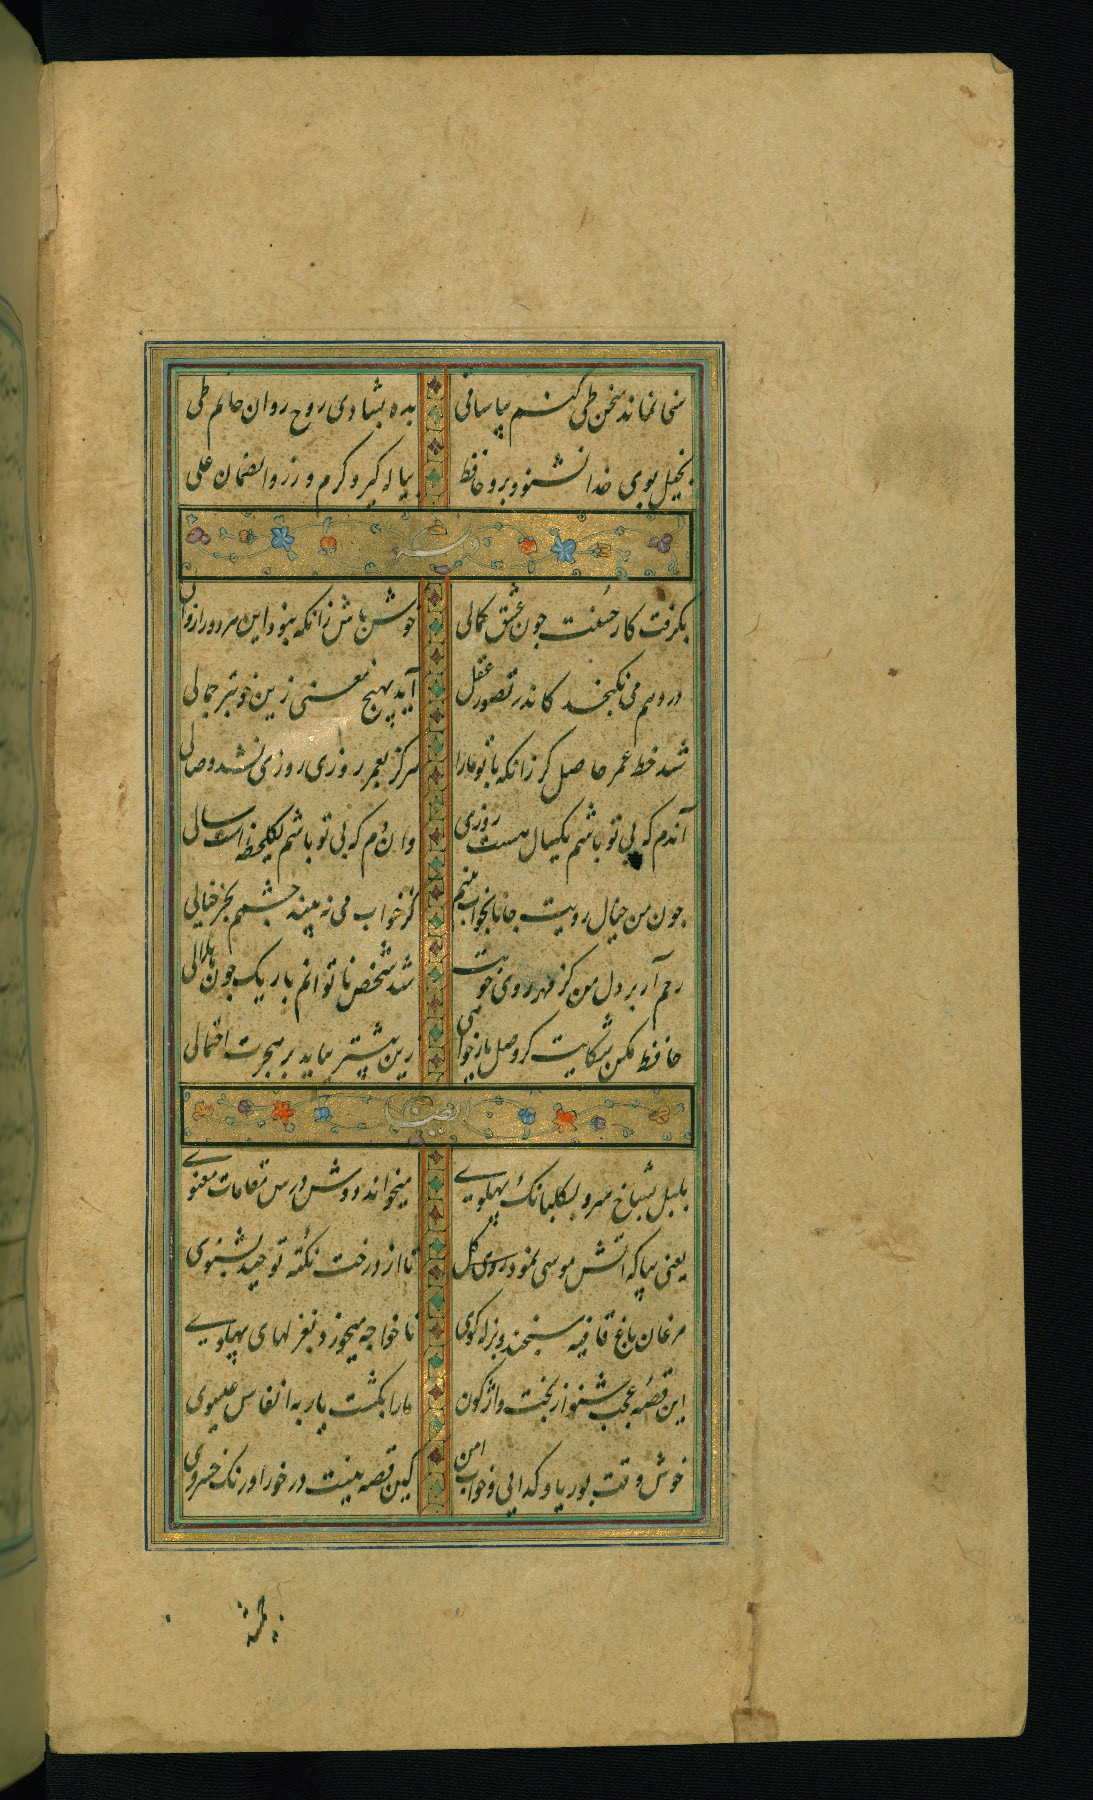 سخی نماند سخن طی کنم بیا ساقی بده بشادی روح روان حاتم طی
بخیل بوی خدا نشنود برو حافظ پیاله گیر و کرم ورز والضمان علی
بگرفت کار حسنت چون عشق کمالی خوش باش زانکه نبود این هر دو را زوالی
در وهم می نگنجد کاندر تصور عقل آید بهیچ معنی زین خوبتر جمالی
شد حظ عمر حاصل گر زانکه با تو ما را هرگز بعمر روزی روزی شود وصالی
آندم که بی تو باشم یکسال هست روزی وان دم که بی تو باشم یکلحظه است سالی
چون من خیال رویت جانا بخواب بینم کز خواب می نه بیند چشمم بجز خیالی
رحم آر بر دل من کز مهر روی خوبت شد شخص ناتوانم باریک چون هلالی
حافظ مکن شکایت گر وصل یار خواهی زین بیشتر بباید بر هجرت احتمالی
بلبل بشاخ سرو بگلبانک پهلوی میخواند دوش درس مقامات معنوی
یعنی بیا که آتش موسی نمود روی گل تا از درخت نکته توحید بشنوی
مرغان باغ قافیه سنجند و بذله گوی تا خواجه میخورد بغزلهای پهلوی
این قصه عجب شنو از بخت واژگون ما را بکشت یار به انفاس عیسوی
خوش وقت بوریا و گدایی و خواب امن کین قصه نیست در خور اورنک خسروی